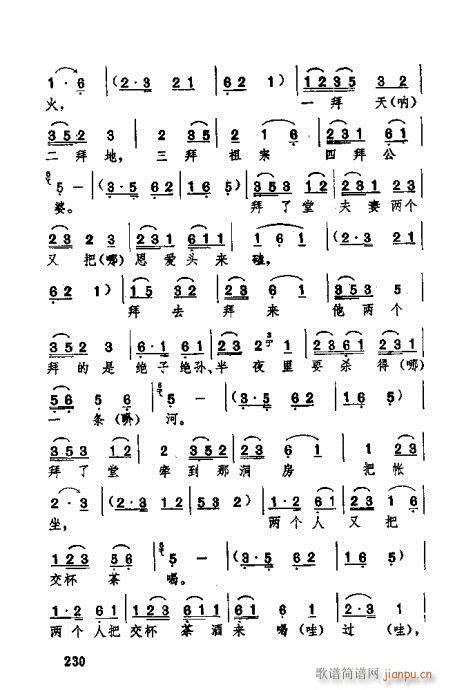 1· 6 | (2·3 21 | 62 1) | 1235 32 |
火， 一拜 天(呐)
352 3 | 2 35 | 2 16 | 231 61 |
二拜地， 三拜 祖宗 四拜公
5 － | (3·5 62 | 16 5) | 353 231 | 123 23 |
婆。 拜了堂 夫妻两个
23 23 | 016 611 | 1 61 | (2·3 21 |
又把(哪)恩爱头来 碰，
62 1) | 15 32 | 23 61 | 353 5 |
拜去 拜来 他两个
352 3 | 6·1 61 | 23 2 | 2361 23 |
拜的是 绝子绝孙、半夜里要杀得(哪)
56 56 | 5 － | (3·5 62 | 16 5) |
一条(啊) 河。
353 3 | 123 23 | 6 1 | 23 3 |
拜了堂 牵到那洞房 把帐
2·3 | (2·3 12 | 353 2) | 12 61 | 2 16 |
坐， 两个人又把
123 56 | 5 － | (3·5 62 | 16 5) |
交杯茶 喝。
1·2 61 | 123 611 | 2 61 | 1·2 61 |
两个人把 交杯茶酒来 喝(哇)过(哇)，
230
歌谱简谱网
jianpu.cn